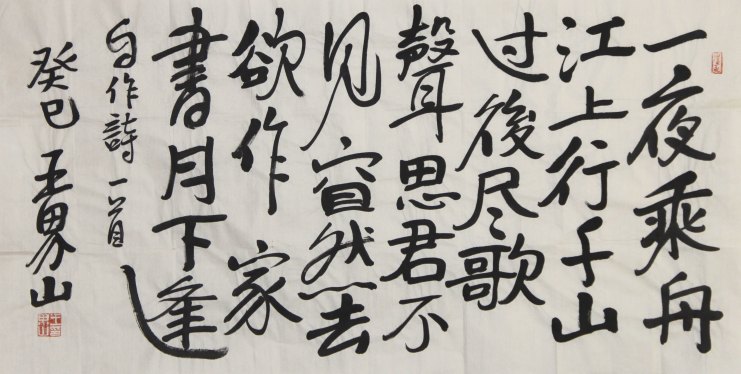 一夜乘舟
江上行千山
过後尽歌
聲思君不
见窅然去
欲作家
書月下逢
自作詩一首
癸巳王界山